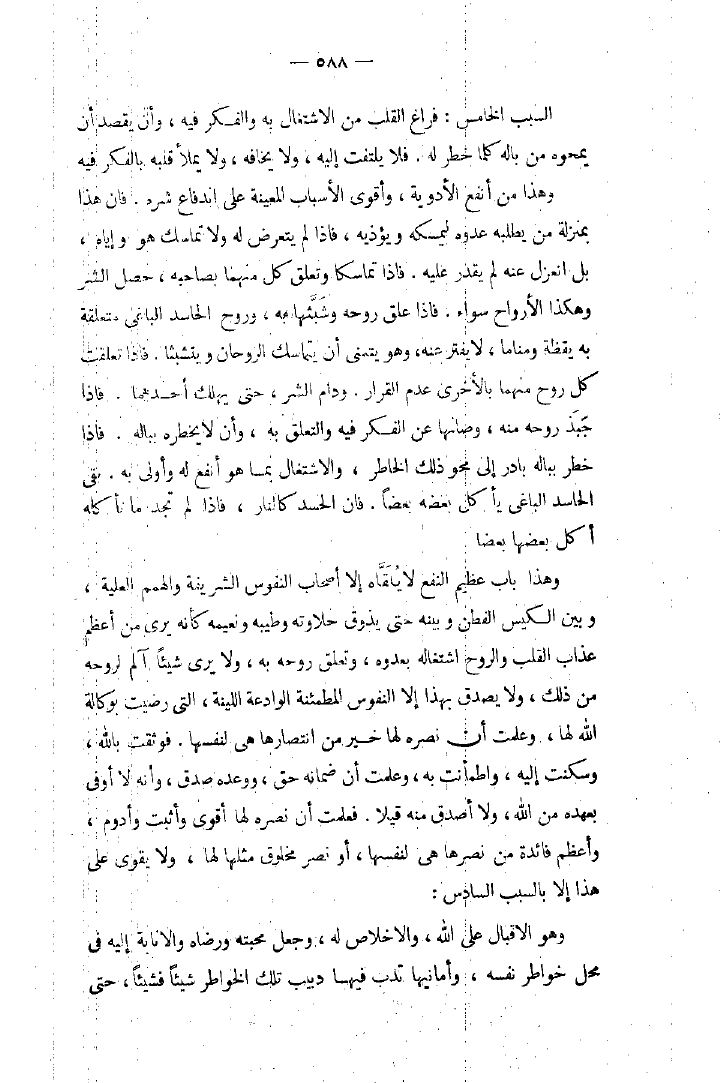 — ٥٨٨ —
السبب الخامس : فراغ القلب من الاشتغال به والفكر فيه ، وأن يقصد أن
يمحوه من باله كلما خطر له . فلا يلتفت إليه ، ولا يخافه ، ولا يملأ قلبه بالفكر فيه
وهذا من أنفع الأدوية ، وأقوى الأسباب المعينة على اندفاع شره . فان هذا
بمنزلة من يطلبه عدوه ليمسكه ويؤذيه ، فاذا لم يتعرض له ولا تماسك هو وإياه ،
بل انعزل عنه لم يقدر عليه . فاذا تماسكا وتعلق كل منهما بصاحبه ، حصل الشر
وهكذا الأرواح سواء . فاذا علق روحه وشَبَّثها به ، وروح الحاسد الباغى متعلقة
به يقظة ومناما ، لايفتر عنه، وهو يتمنى أن يتماسك الروحان ويتشبثا . فاذا تعلقت
كل روح منهما بالأخرى عدم القرار . ودام الشر ، حتى يهلك أحدهما . فاذا
جَبَذ روحه منه ، وصانها عن الفكر فيه والتعلق به ، وأن لايخطره بباله . فاذا
خطر بباله بادر إلى محو ذلك الخاطر ، والاشتغال بما هو أنفع له وأولى به . بقى
الحاسد الباغى يأكل بعضه بعضاً . فان الحسد كالنار ، فاذا لم تجد ما تأكله
أكل بعضها بعضا
وهذا باب عظيم النفع لايُلَقَّاه إلا أصحاب النفوس الشريفة والهمم العلية ،
وبين الكيس الفطن وبينه حتى يذوق حلاوته وطيبه ونعيمه كأنه يرى من أعظم
عذاب القلب والروح اشتغاله بعدوه ، وتعلق روحه به ، ولا يرى شيئاً آلم لروحه
من ذلك ، ولا يصدق بهذا إلا النفوس المطمئنة الوادعة اللينة ، التى رضيت بوكالة
الله لها ، وعلمت أن نصره لها خير من انتصارها هى لنفسها . فوثقت بالله ،
وسكنت إليه ، واطمأنت به، وعلمت أن ضمانه حق ، ووعده صدق ، وأنه لا أوفى
بعهده من الله، ولا أصدق منه قيلا . فعلمت أن نصره لها أقوى وأثبت وأدوم ،
وأعظم فائدة من نصرها هى لنفسها ، أو نصر مخلوق مثلها لها ، ولا يقوى على
هذا إلا بالسبب السادس :
وهو الاقبال على الله ، والاخلاص له ، وجعل محبته ورضاه والانابة إليه فى
محل خواطر نفسه ، وأمانيها تدب فيها دبيب تلك الخواطر شيئاً فشيئاً ، حتى